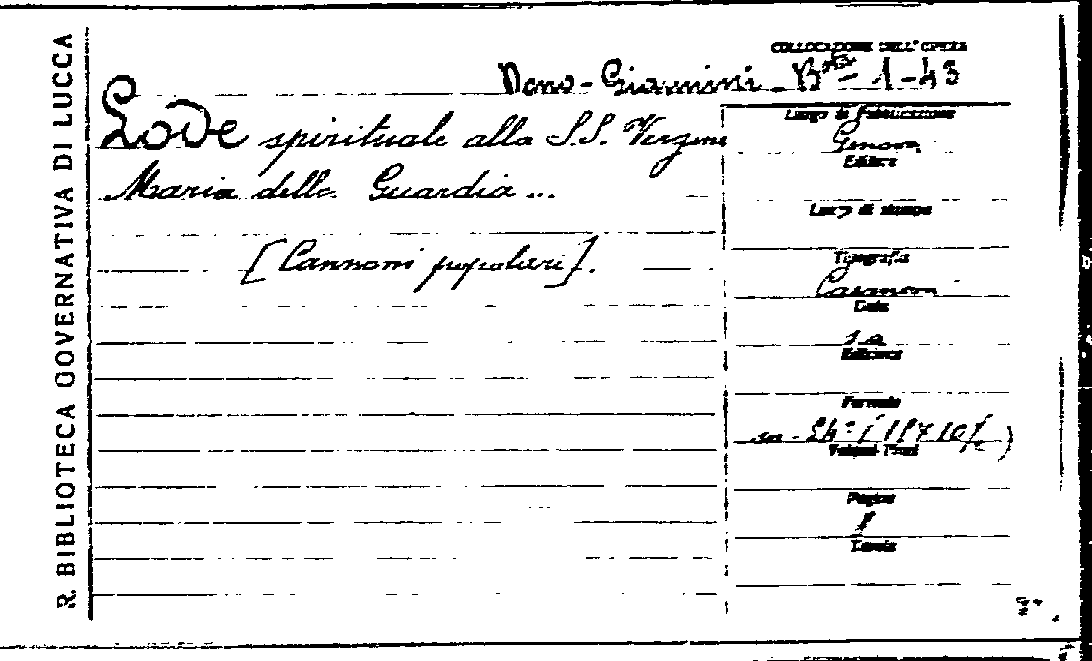 R. BIBLIOTECA GOVERNATIVA DI LUCCA
COLLOCAZIONE DELL'OPERA
Dono - Giannini - 1-43
Lode spirituale alla S.S. Vergine
Maria della Guardia ...
[Canzoni popolari].
Luogo di Pubblicazione
Genova
Editore
Luogo di stampa
Tipografia
Casamara
Data
s.a
Edizione
Formato
in-24º
Volumi-Parti
Pagine
Tavole